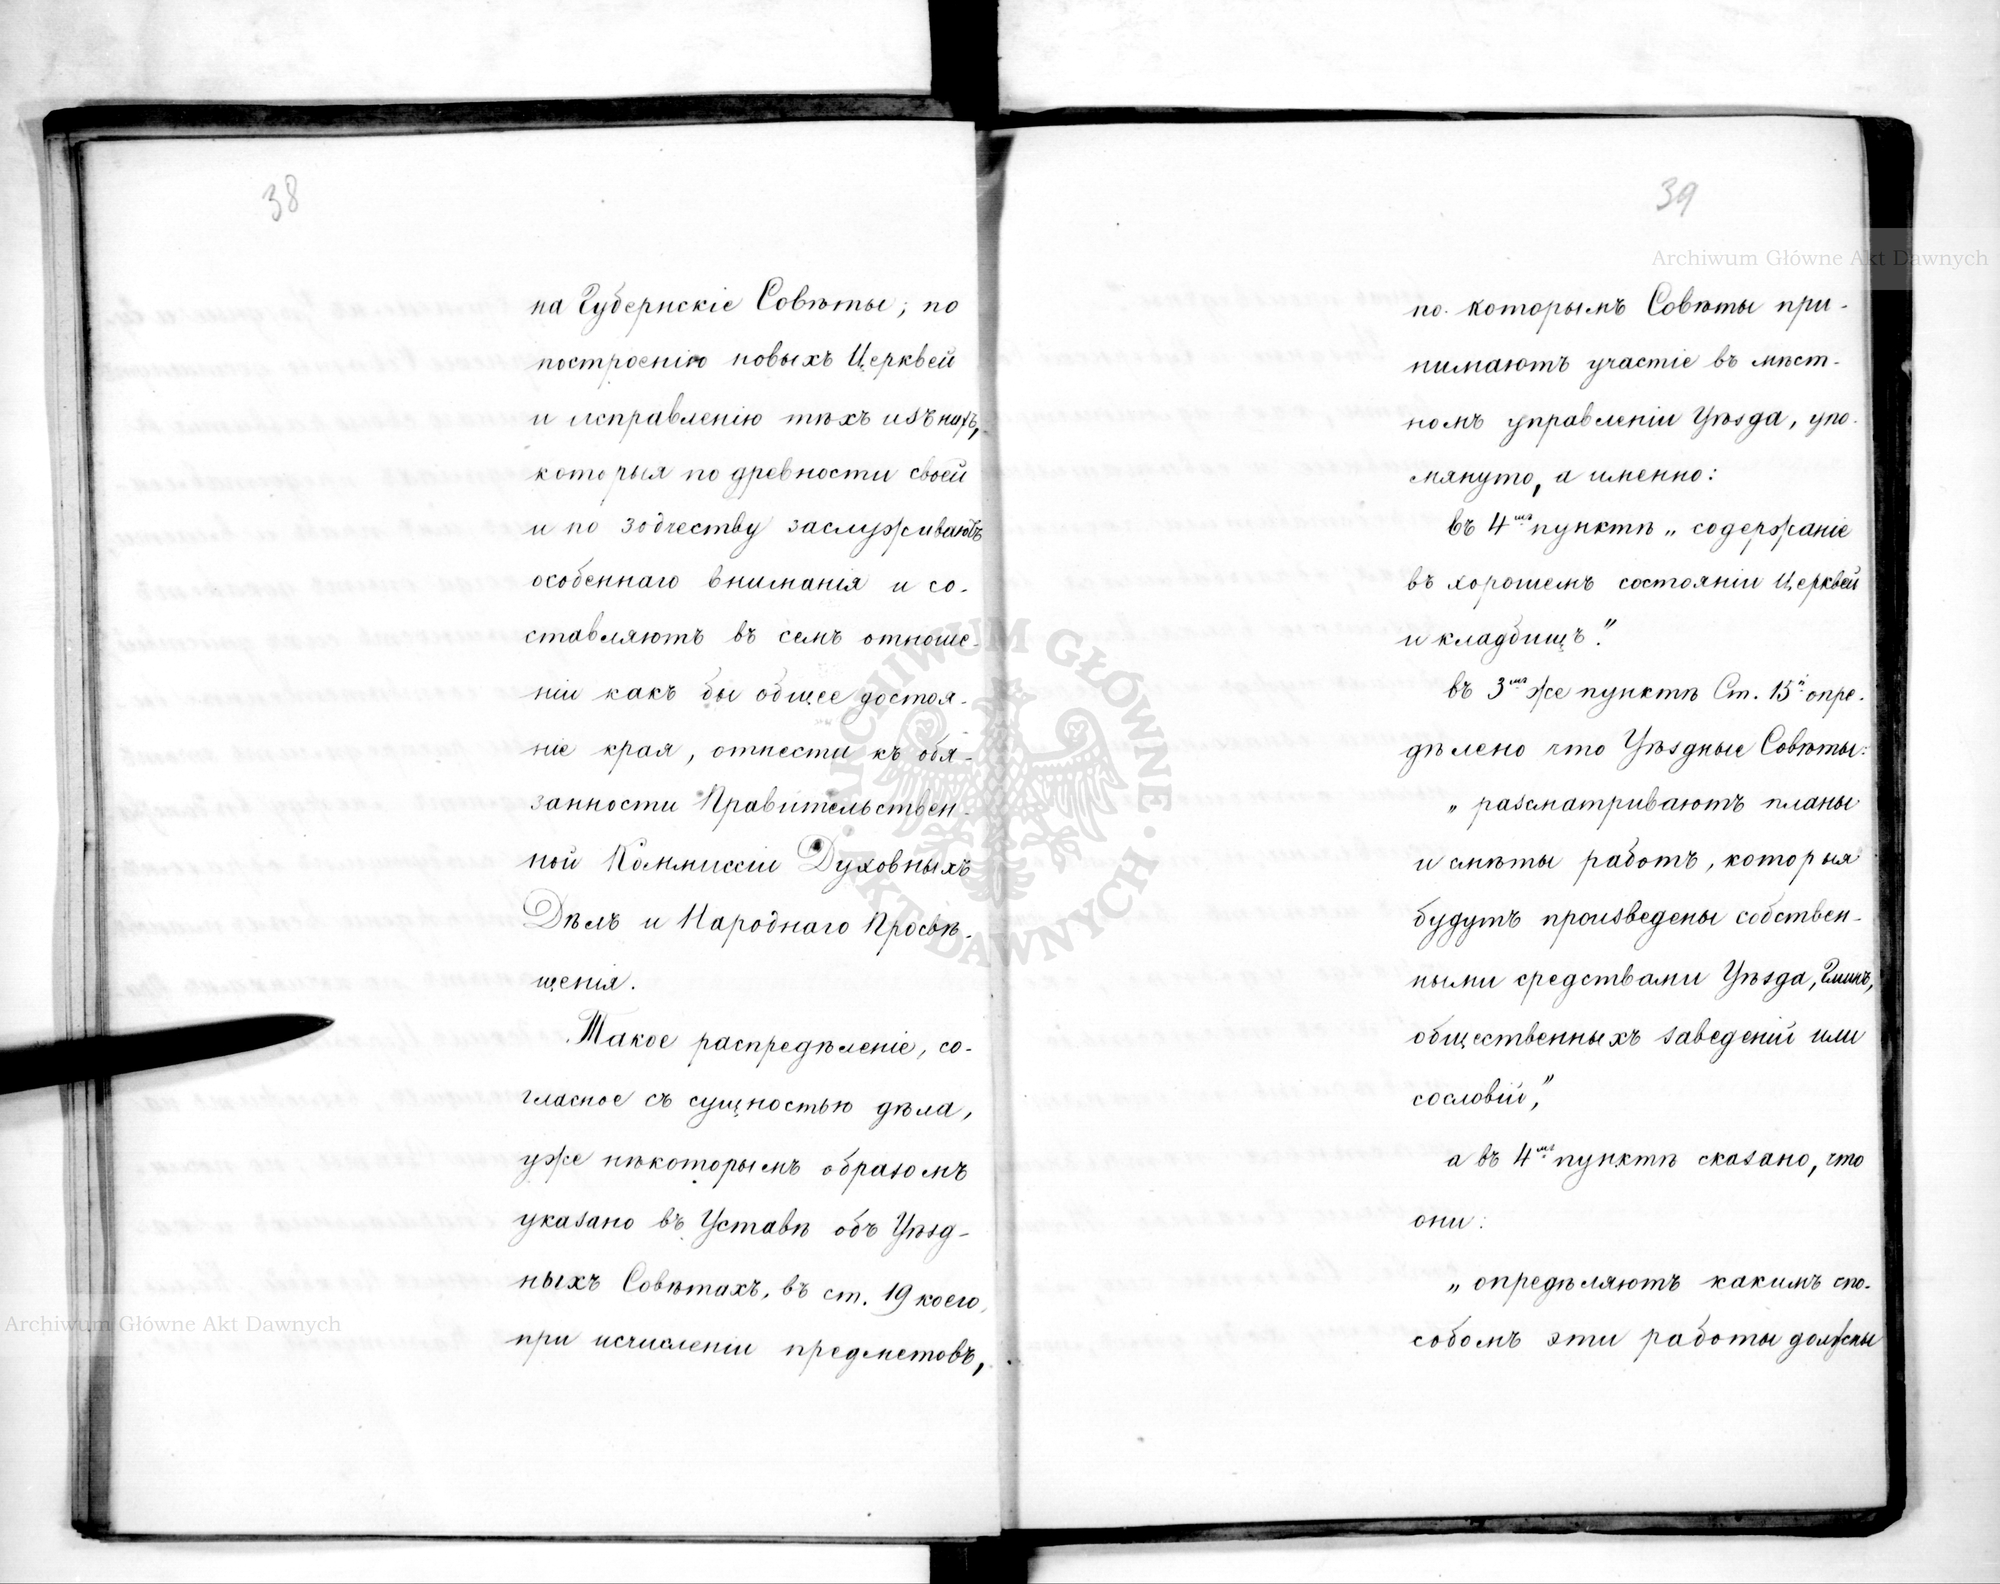 38
на Губернскіе Совѣты; по
построенію новыхъ Церквей
и исправленію тѣхъ изъ нихъ,
которыя по древности своей
и по зодчеству заслуживаютъ
особеннаго вниманія и со-
ставляютъ въ семъ отноше-
ніи какъ бы общее достоя-
ніе края, отнести къ обя-
занности Правительствен-
ной Коммиссіи Духовныхъ
Дѣлъ и Народнаго Просвѣ-
щенія.
Такое распредѣленіе, со-
гласное съ сущностью дѣла,
уже нѣкоторымъ образомъ
указано въ Уставѣ объ Уѣзд-
ныхъ Совѣтахъ, въ ст. 19 коего,
при исчисленіи предметовъ,
39
по которымъ Совѣты при-
нимаютъ участіе въ мѣст-
номъ управленіи Уѣзда, упо-
мянуто, а именно:
въ 4мъ пунктѣ „содержаніе
въ хорошемъ состояніи Церквей
и кладбищъ".
въ 3мъ же пунктѣ Ст. 15й опре-
дѣлено что Уѣздные Совѣты:
„разсматриваютъ планы
и смѣты работъ, которыя
будутъ произведены собствен-
ными средствами Уѣзда, Гминъ,
общественныхъ заведеній или
сословій,"
а въ 4мъ пунктѣ сказано, что
они:
„опредѣляютъ какимъ спо-
собомъ эти работы должны
Archiwum Główne Akt Dawnych
Archiwum Główne Akt Dawnych
ARCHIWUM GŁÓWNE AKT DAWNYCH